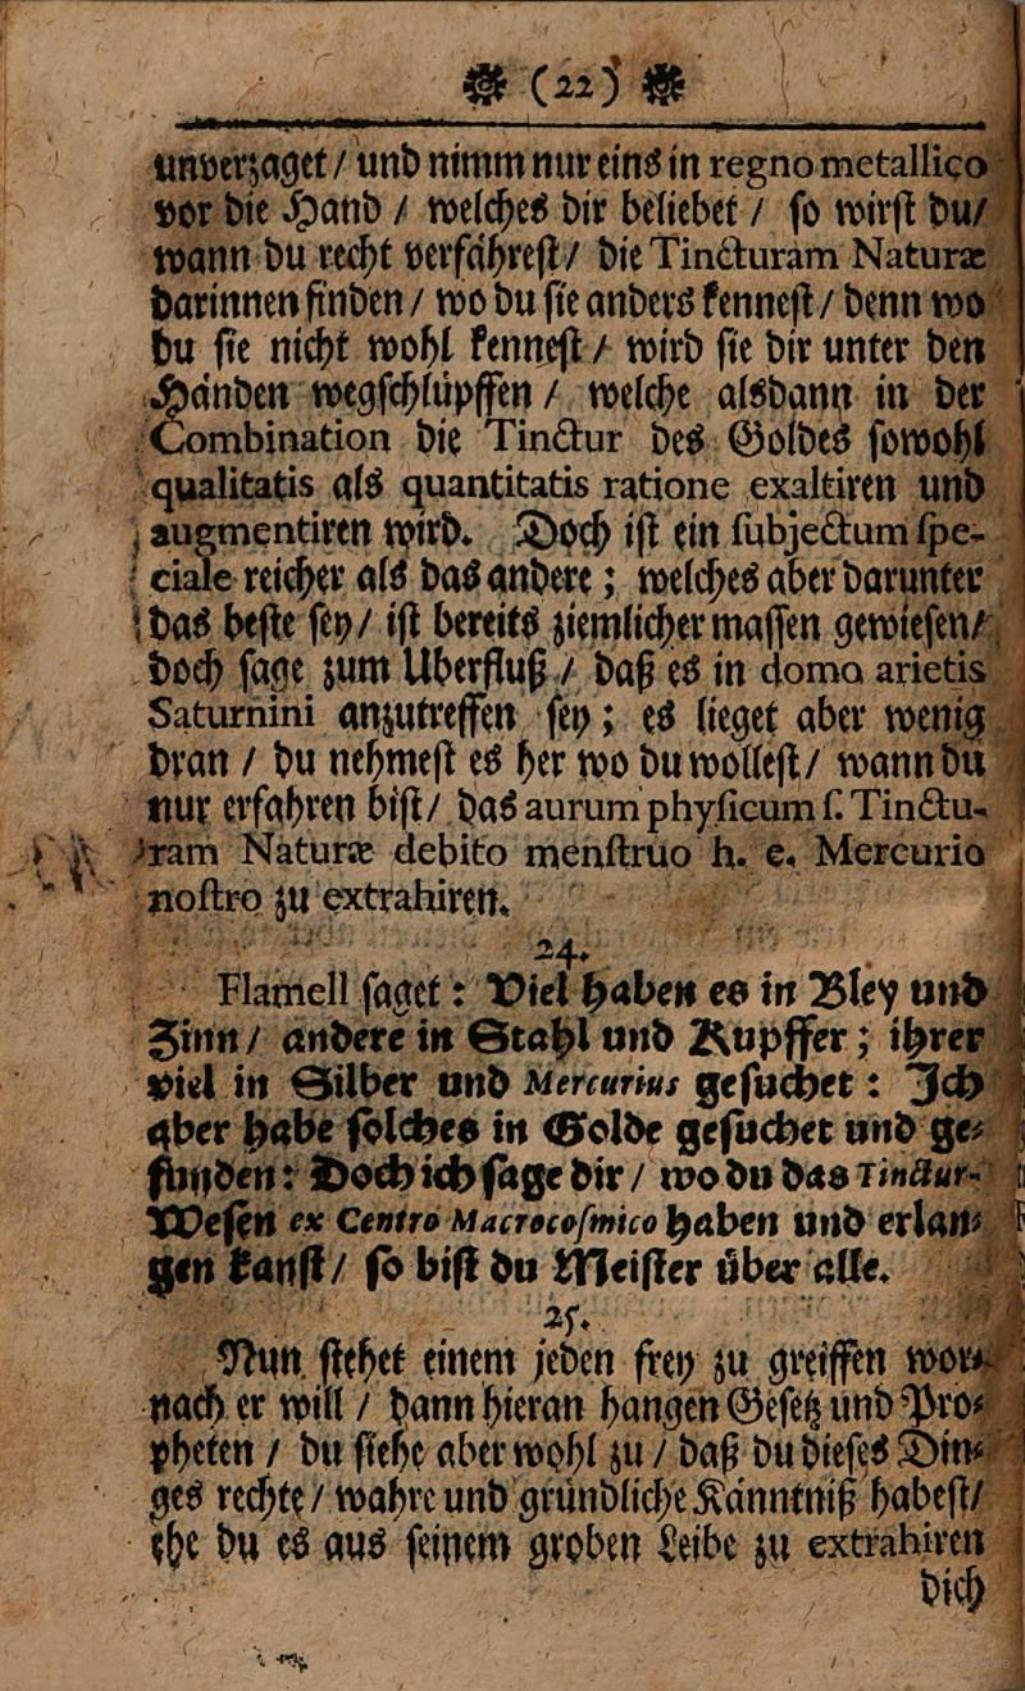 (22)
unverzaget / und nimm nur eins in regno metallico
vor die Hand / welches dir beliebet / so wirst du /
wann du recht verfährest / die Tincturam Naturæ
darinnen finden / wo du sie anders kennest / denn wo
du sie nicht wohl kennest / wird sie dir unter den
Händen wegschlüpffen / welche alsdann in der
Combination die Tinctur des Goldes sowohl
qualitatis als quantitatis ratione exaltiren und
augmentiren wird. Doch ist ein subjectum spe-
ciale reicher als das andere ; welches aber darunter
das beste sey / ist bereits ziemlicher massen gewiesen /
doch sage zum Uberfluß / daß es in domo arietis
Saturnini anzutreffen sey ; es lieget aber wenig
dran / du nehmest es her wo du wollest / wann du
nur erfahren bist / das aurum physicum s. Tinctu-
ram Naturæ debito menstruo h. e. Mercurio
nostro zu extrahiren.
24.
Flamell saget : Viel haben es in Bley und
Zinn / andere in Stahl und Kupffer ; ihrer
viel in Silber und Mercurius gesuchet : Ich
aber habe solches in Golde gesuchet und ge-
funden : Doch ich sage dir / wo du das Tinctur-
Wesen ex Centro Macrocosmico haben und erlan-
gen kanst / so bist du Meister über alle.
25.
Nun stehet einem jeden frey zu greiffen wor-
nach er will / dann hieran hangen Gesetz und Pro-
pheten / du siehe aber wohl zu / daß du dieses Din-
ges rechte / wahre und gründliche Känntniß habest /
ehe du es aus seinem groben Leibe zu extrahiren
dich